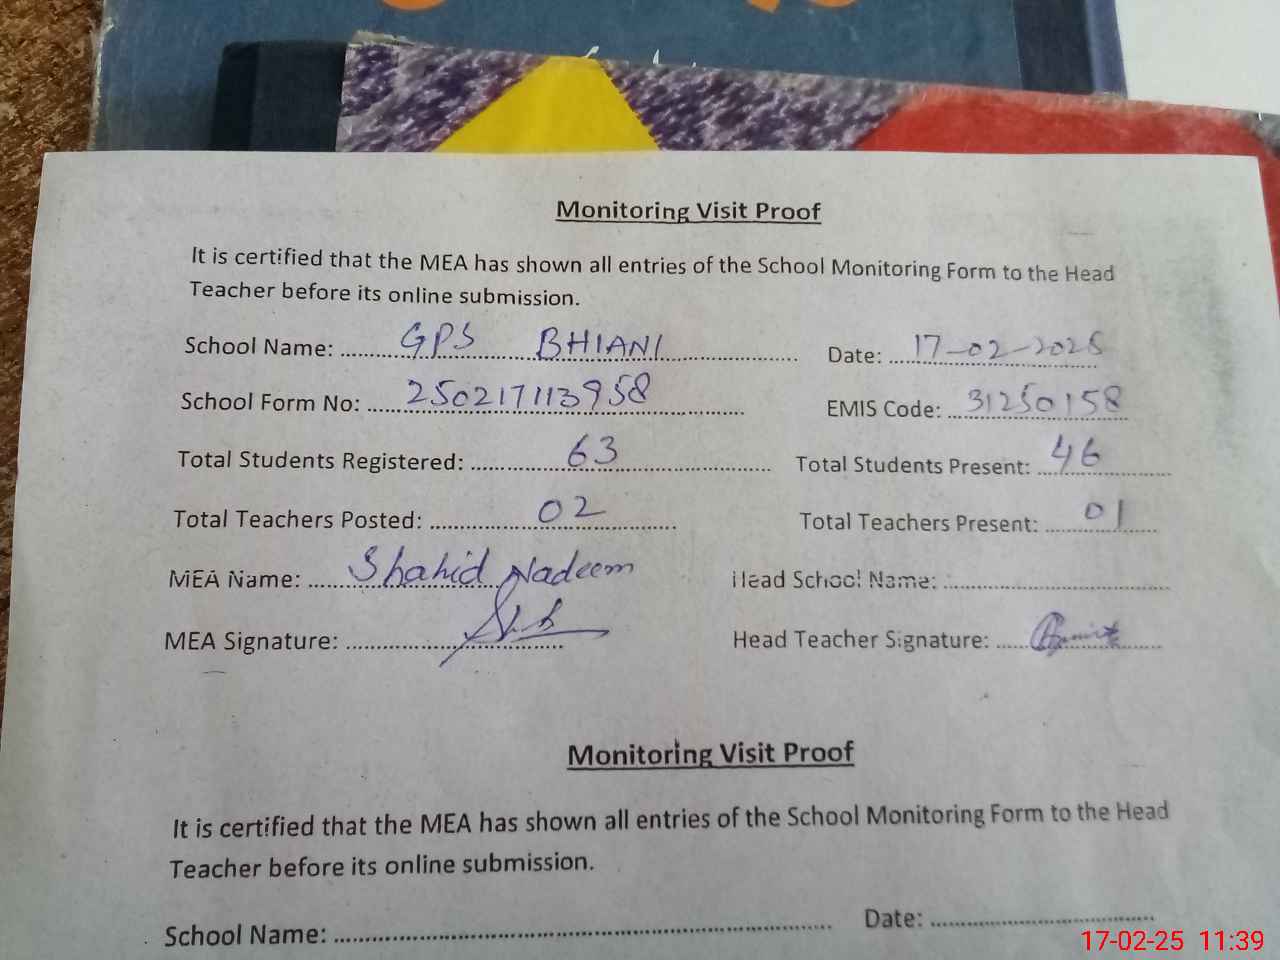 Monitoring Visit Proof
It is certified that the MEA has shown all entries of the School Monitoring Form to the Head
Teacher before its online submission.
School Name: GPS BHIANI Date: 17-02-2025
School Form No: 250217113958 EMIS Code: 31250158
Total Students Registered: 63 Total Students Present: 46
Total Teachers Posted: 02 Total Teachers Present: 01
MEA Name: Shahid Nadeem Head School Name:
MEA Signature: Head Teacher Signature:
Monitoring Visit Proof
It is certified that the MEA has shown all entries of the School Monitoring Form to the Head
Teacher before its online submission.
School Name: Date:
17-02-25 11:39